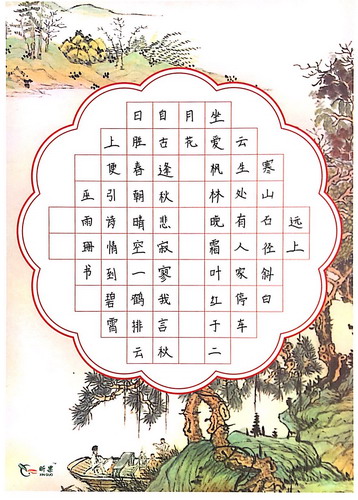 远上
寒山石径斜白
云生处有人家停车
坐爱枫林晚霜叶红于二
月花
自古逢秋悲寂寥我言秋
日胜春朝晴空一鹤排云
上便引诗情到碧霄
巫雨珊书
XIN GUO